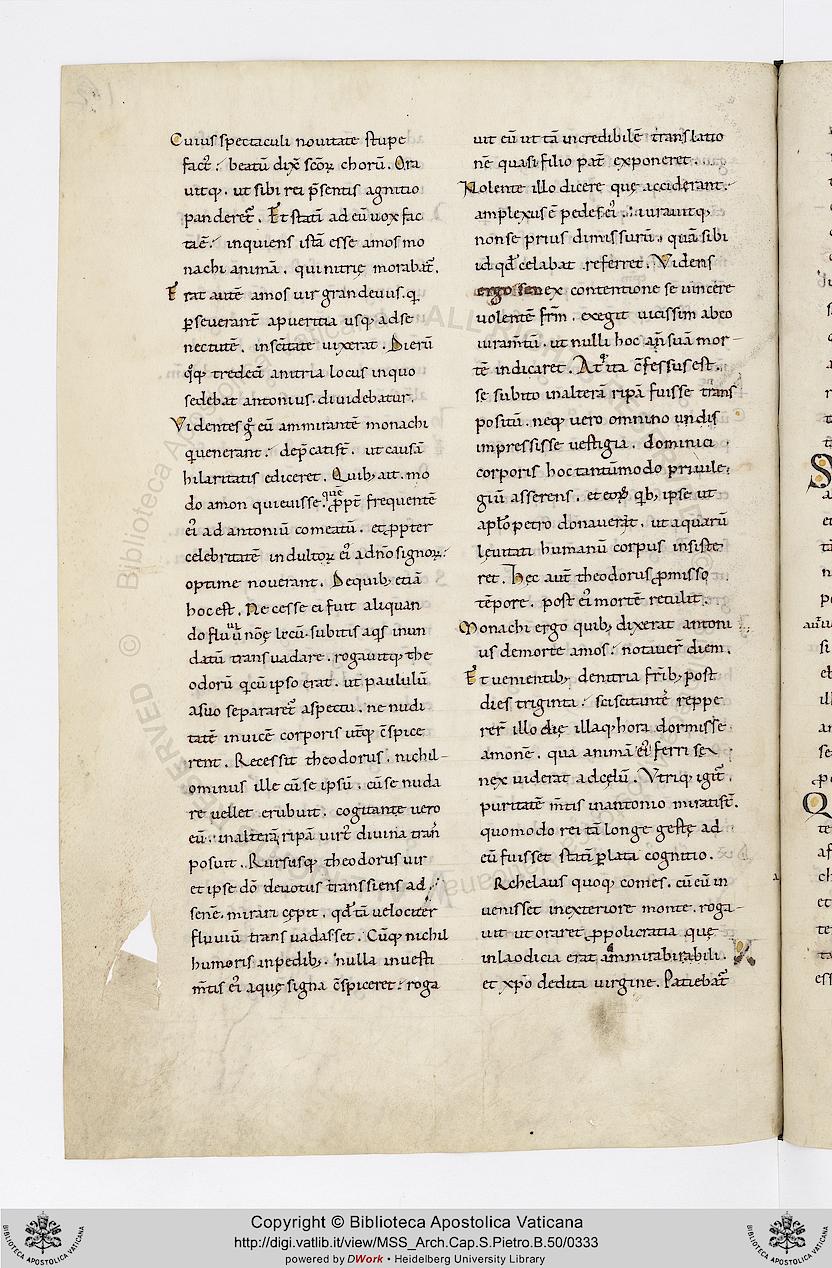 Cuius spectaculi nouitate stupe
fact᷒. beatū dix̄ sc̄oꝝ chorū. Ora
uitq; ut sibi rei p̄sentis agnitio
panderet᷑. Et statī ad eū uox fac
ta ē. inquiens istā esse amos mo
nachi animā. qui nitrię morabat᷑.
Erat autē amos uir grandeuus. q̇
ꝑseuerant̄ a pueritia usq; ad se
nectutē. in sc̄itate uixerat. Dierū
tredeci a nitria locus in quo
sedebat antonius. diuidebatur.
Videntes g̊ eū ammirantē monachi
q̇ uenerant. dep̄catist̄. ut causā
hilaritatis ediceret. Quib; ait. mo
do amon quieuisse. quē ꝓpt̄ frequentē
ei᷒ ad antoniū comeatū. et ꝓpter
celebritatē indultoꝝ ei᷒ a dn̄o signoꝝ.
optime nouerant. De quib; etiā
hoc est. Necesse ei fuit aliquan
do fluuiū subitis aq̇s inun
datū transuadare. rogauitq; the
odorū q̇ cū ipso erat. ut paululū
a suo separaret᷑ aspectu. ne nudi
tatē inuicē corporis utq; c̄spice
rent. Recessit theodorus. nichil
ominus ille cū seipsū. cū se nuda
re uellet erubuit. cogitante uero
eū. in alterā ripā uirt᷒ diuina trans
posuit. Rursusq; theodorus uir
et ipse dō deuotus transsiens ad
senē. mirari cępit. qd̄ tā uelociter
fluuiū transuadasset. Cūq; nichil
humoris in pedib;. nulla in uesti
m̄tis ei᷒ aquę signa c̄spiceret. roga
uit eū ut tā incredibilē translatio
nē quasi filio pat᷑ exponeret.
Nolente illo dicere quę acciderant.
amplexus ē pedes ei᷒. iurauitq;
non se prius dimissurū. quā sibi
id qd̄ celabat referret. Videns
ergo senex contentione se uincere
uolentē fr̄m. exegit uicissim ab eo
iuram̄tū. ut nulli hoc an̄ suā mor
tē indicaret. At ita c̄fessus est.
se subito in alterā ripā fuisse trans
positū. neq; uero omnino undis
impressisse uestigia. dominici
corporis hoc tantūmodo priuile
giū asserens. et eoꝝ qb; ipse ut
apl̄o petro donauerit. ut aquarū
leuitati humanū corpus insiste
ret. Hęc aut̄ theodorus ꝓmisso
tēpore. post ei᷒ mortē retulit.
Monachi ergo quib; dixerat antoni
us de morte amos. notauer̄ diem.
Et uenientib; de nitria fr̄ib; post
dies triginta. sciscitantes reppe
rer̄ illo die illaq; hora dormisse
amonē. qua animā ei᷒ ferri se
nex uiderat ad cęlū. Vtriq; igit᷑.
puritatē m̄tis in antonio mirati st̄.
quomodo rei tā longe gestę ad
eū fuisset statī ꝑlata cognitio.
Archelaus quoq; comes. cū eū in
uenisset in exteriore monte. roga
uit ut oraret ꝓ policratia quę
in laodicia erat ammirabirabili.
et xp̄o dedita uirgine. Patiebat᷑
Copyright © Biblioteca Apostolica Vaticana
http://digi.vatlib.it/view/MSS_Arch.Cap.S.Pietro.B.50/0333
powered by DWork • Heidelberg University Library